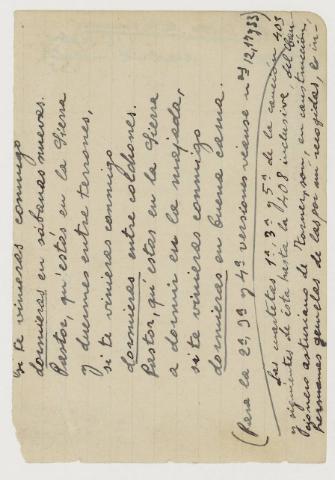 si te vinieras conmigo
dormieras en sábanas nuevas.
Pastor, qu'estás en la Sierra
y duermes entre terrones,
si te vinieras conmigo
dormieras entre colchones.
Pastor, qu'estas en la Sierra
a dormir en la majada,
si te vinieras conmigo
dormieras en buena cama.
(Para la 2ª, 3ª y 4ª versiones véanse nos 12, 17 y 33)
Las cuartetas 1ª, 3ª y 5ª de la canción 403
y siguientes de ésta hasta la 408 inclusive del Can-
cionero asturiano de Torner, son, en construcción,
hermanas gemelas de las por mí recogidas, e in-